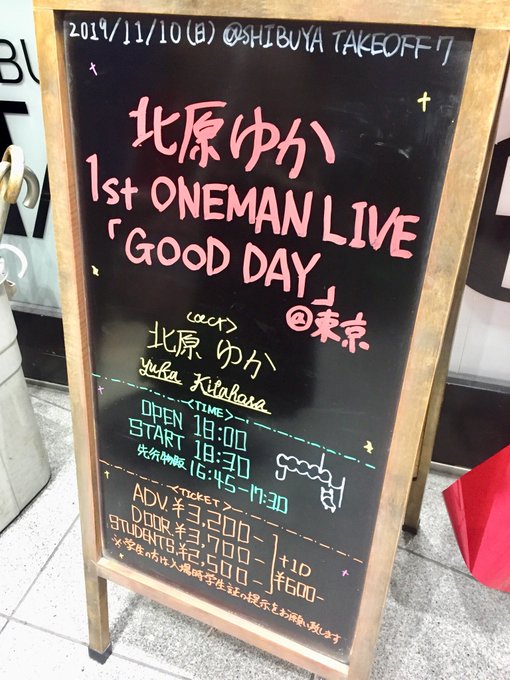 2019/11/10(日) @SHIBUYA TAKEOFF 7
北原ゆか
1st ONEMAN LIVE
「GOOD DAY」
@東京
<act>
北原 ゆか
Yuka Kitahara
<TIME>
OPEN 18:00
START 18:30
先行物販 16:45-17:30
goody!
<TICKET>
ADV.¥3,200-
DOOR.¥3,700-
STUDENTS.¥2,500-
+1D
¥600-
※学生の方は入場時学生証の提示をお願い致します